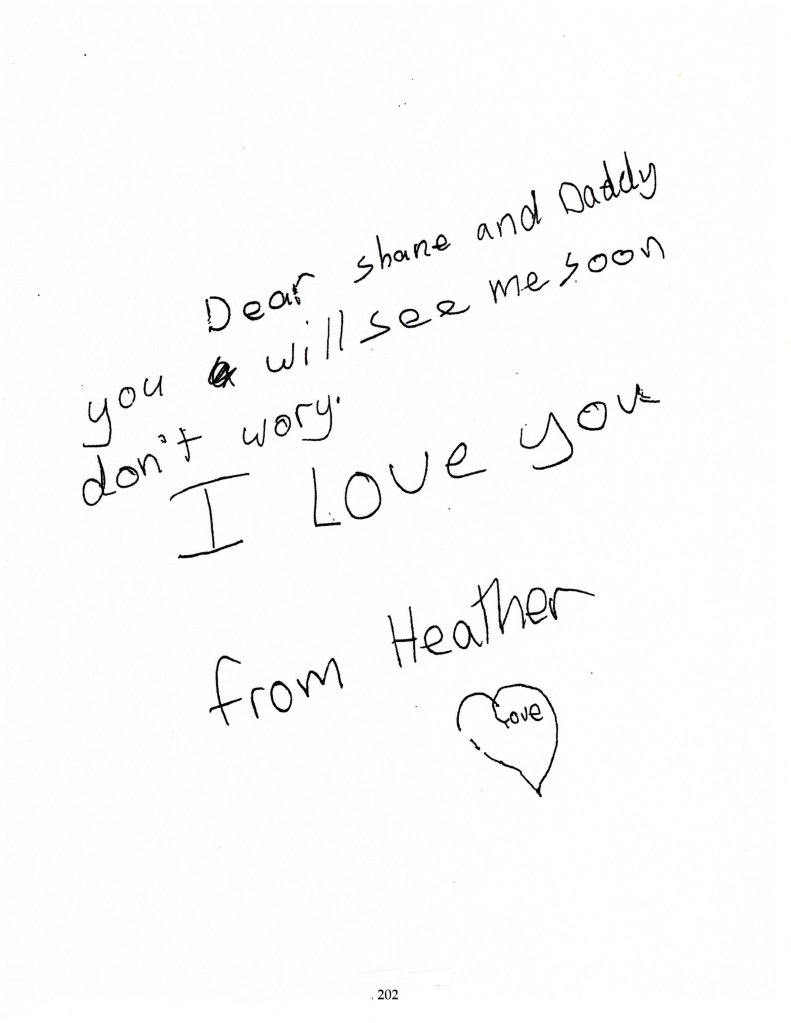 Dear shane and Daddy
you will see me soon
don't wory.
I Love you
from Heather
Love
202